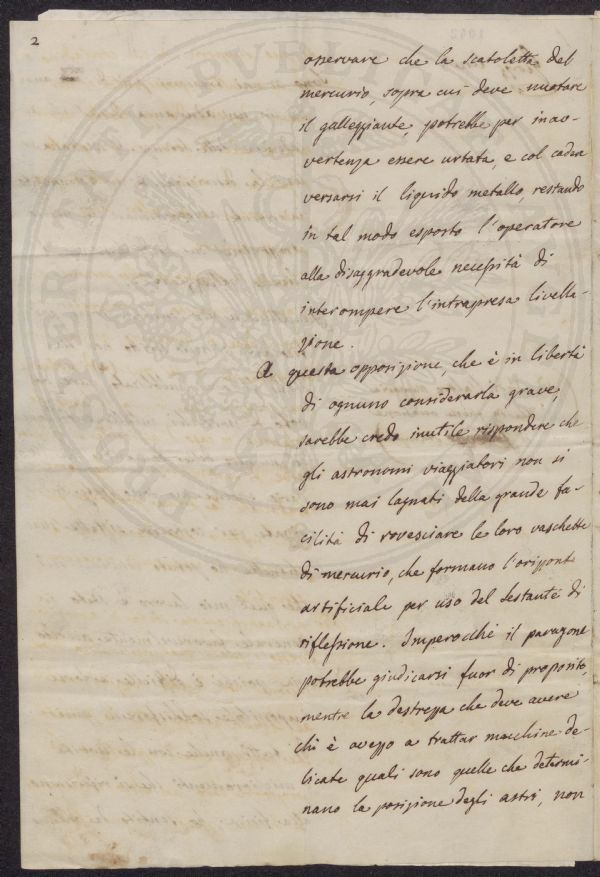 2
osservare che la scatoletta del
mercurio, sopra cui deve nuotare
il galleggiante potrebbe per inav-
vertenza essere urtata, e col cader
versarsi il liquido metallo, restando
in tal modo esposto l'operatore
alla disaggradevole necessità di
interompere l'intrapresa livella-
zione.
A questa opposizione, che è in libertà
di ognuno considerarla grave,
sarebbe credo inutile rispondere che
gli astronomi viaggiatori non si
sono mai lagnati della grande fa-
cilità di rovesciare le loro vaschette
di mercurio, che formano l'orizzont
artificiale per uso del sestante di
riflessione. Imperocchè il paragone
potrebbe giudicarsi fuor di proposito,
mentre la destrezza che deve avere
chi è avezzo a trattar macchine de-
licate quali sono quelle che determi-
nano la posizione degli astri, non